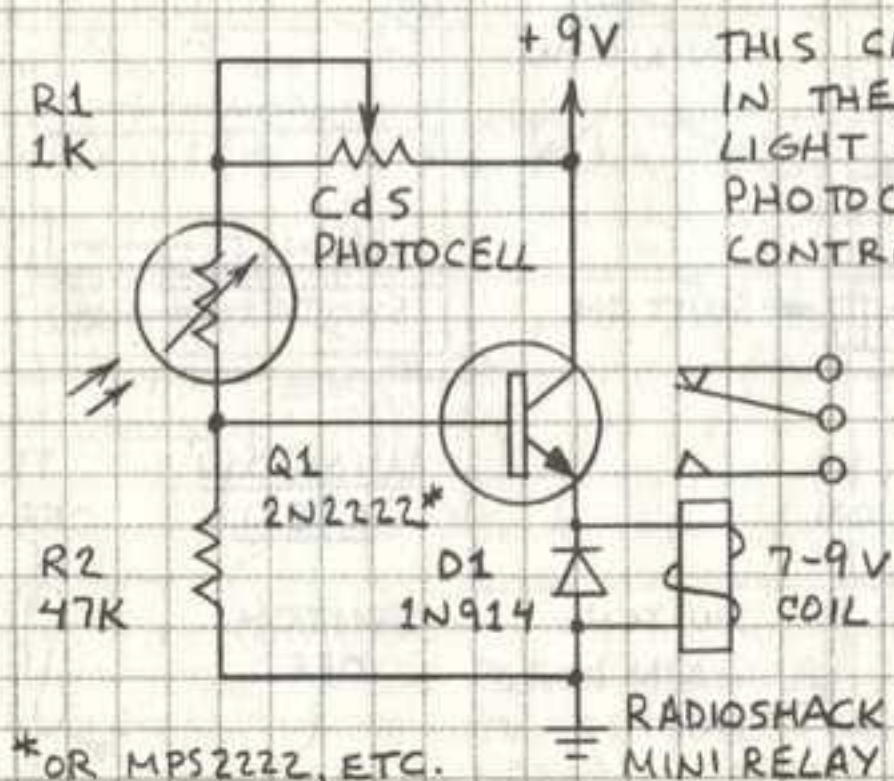 +9V
THIS
IN THE
LIGHT
R1
1K
CdS
PHOTOCELL
Q1
2N2222*
R2
47K
D1
1N914
7-9V
COIL
RADIOSHACK
MINI RELAY
*OR MPS2222, ETC.